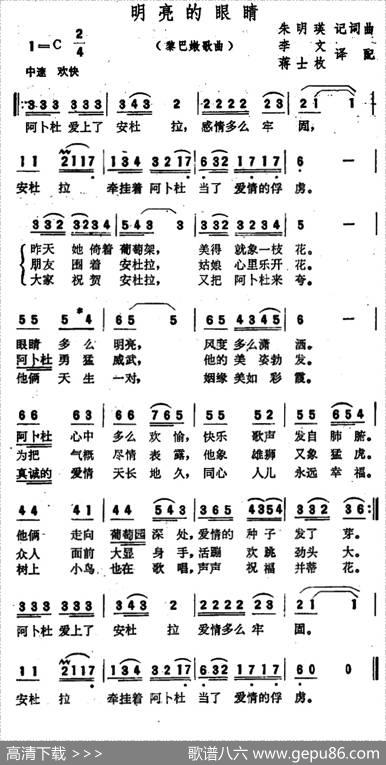 明亮的眼睛
朱明瑛 记词曲
1=C 2/4
(黎巴嫩歌曲)
李文
蒋士枚 译配
中速 欢快
‖: 333 333 | 343 2 | 2222 23 | 21 1 |
阿卜杜 爱上了 安杜 拉, 感情多么 牢 固,
11 2117 | 134 3217 | 632 1717 | 6 — |
安杜 拉 牵挂着 阿卜杜 当了 爱情的俘 虏。
332 3234 | 543 3 | 332 3234 | 2 — |
昨天 她 倚着 葡萄架, 美得 就象一枝 花。
朋友 围着 安杜拉, 姑娘 心里乐开 花。
大家 祝贺 安杜拉, 又把 阿卜杜来 夸。
55 5 4 | 65 5 | 65 4345 | 6 — |
眼睛 多么 明亮, 风度 多么潇 洒。
阿卜杜 勇猛 威武, 他的 美姿勃 发。
他俩 天生 一对, 姻缘 美如彩 霞。
66 63 | 66 765 | 55 52 | 55 654 |
阿卜杜 心中 多么 欢愉, 快乐 歌声 发自 肺腑。
为把 气概 尽情 表露, 他象 雄狮 又象 猛虎。
真诚的 爱情 天长 地久, 同心 人儿 永远 幸福。
44 41 | 44 543 | 365 4354 | 332 36 :‖
他俩 走向 葡萄园 深处, 爱情的 种子 发了 芽。
众人 面前 大显 身手, 活蹦 欢跳 劲头 大。
树上 小鸟 也在 歌唱, 声声 祝福 并蒂 花。
333 333 | 343 2 | 2222 23 | 21 1 |
阿卜杜 爱上了 安杜 拉 爱情多么 牢 固。
11 2117 | 134 3217 | 632 1717 | 60 0 ‖
安杜 拉 牵挂着 阿卜杜 当了 爱情的俘 虏。
高清下载 >>> 歌谱八六 www.gepu86.com